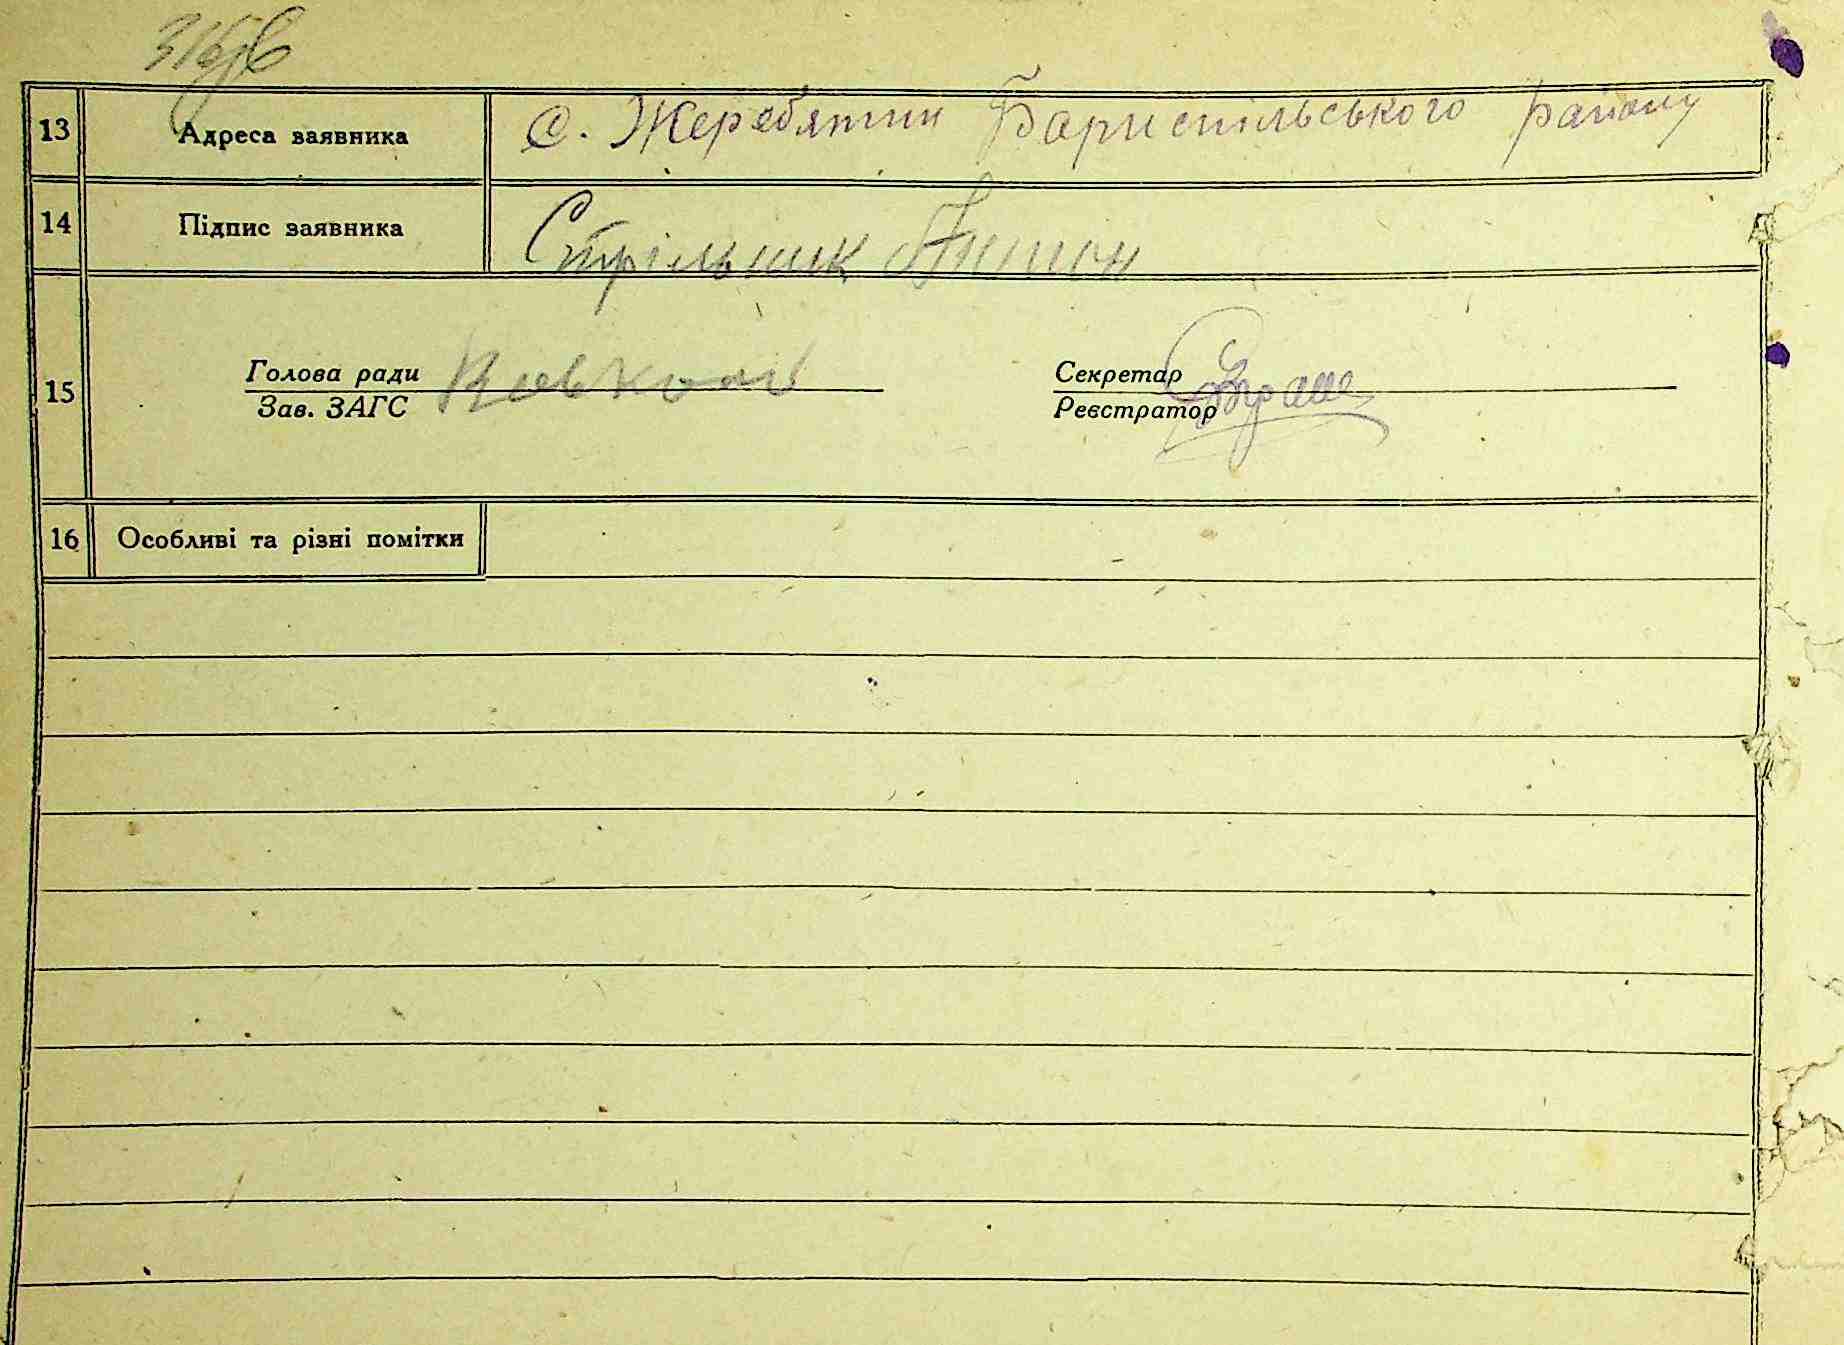 13 Адреса заявника с. Жереб'ятин Бариспільського району
14 Підпис заявника Стрільник Антон
15 Голова ради Секретар
Зав. ЗАГС Реєстратор
16 Особливі та різні помітки